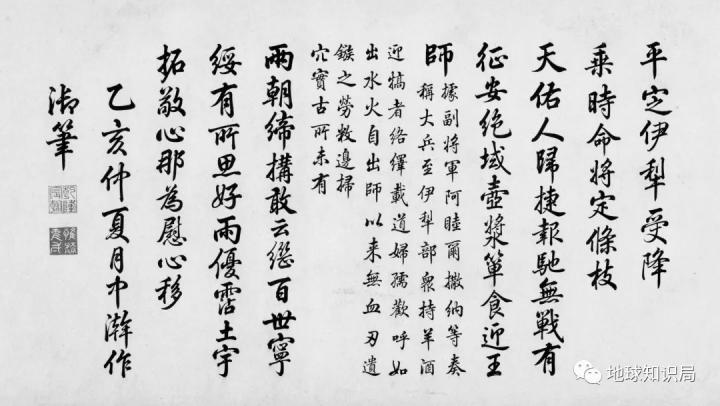 平定伊犁受降
乘時命將定條枝
天佑人歸捷報馳無戰有
征安絶域壺漿簞食迎王
師
據副將軍阿睦爾撒納等奏
稱大兵至伊犁部衆持羊酒
迎犒者絡繹載道婦孺歡呼如
出水火自出師以来無血刃遺
鏃之勞敉邊掃
穴實古所未有
兩朝締構敢云繼百世寧
綏有所思好雨優霑土宇
拓敬心那為慰心移
乙亥仲夏月中澣作
御筆
地球知识局